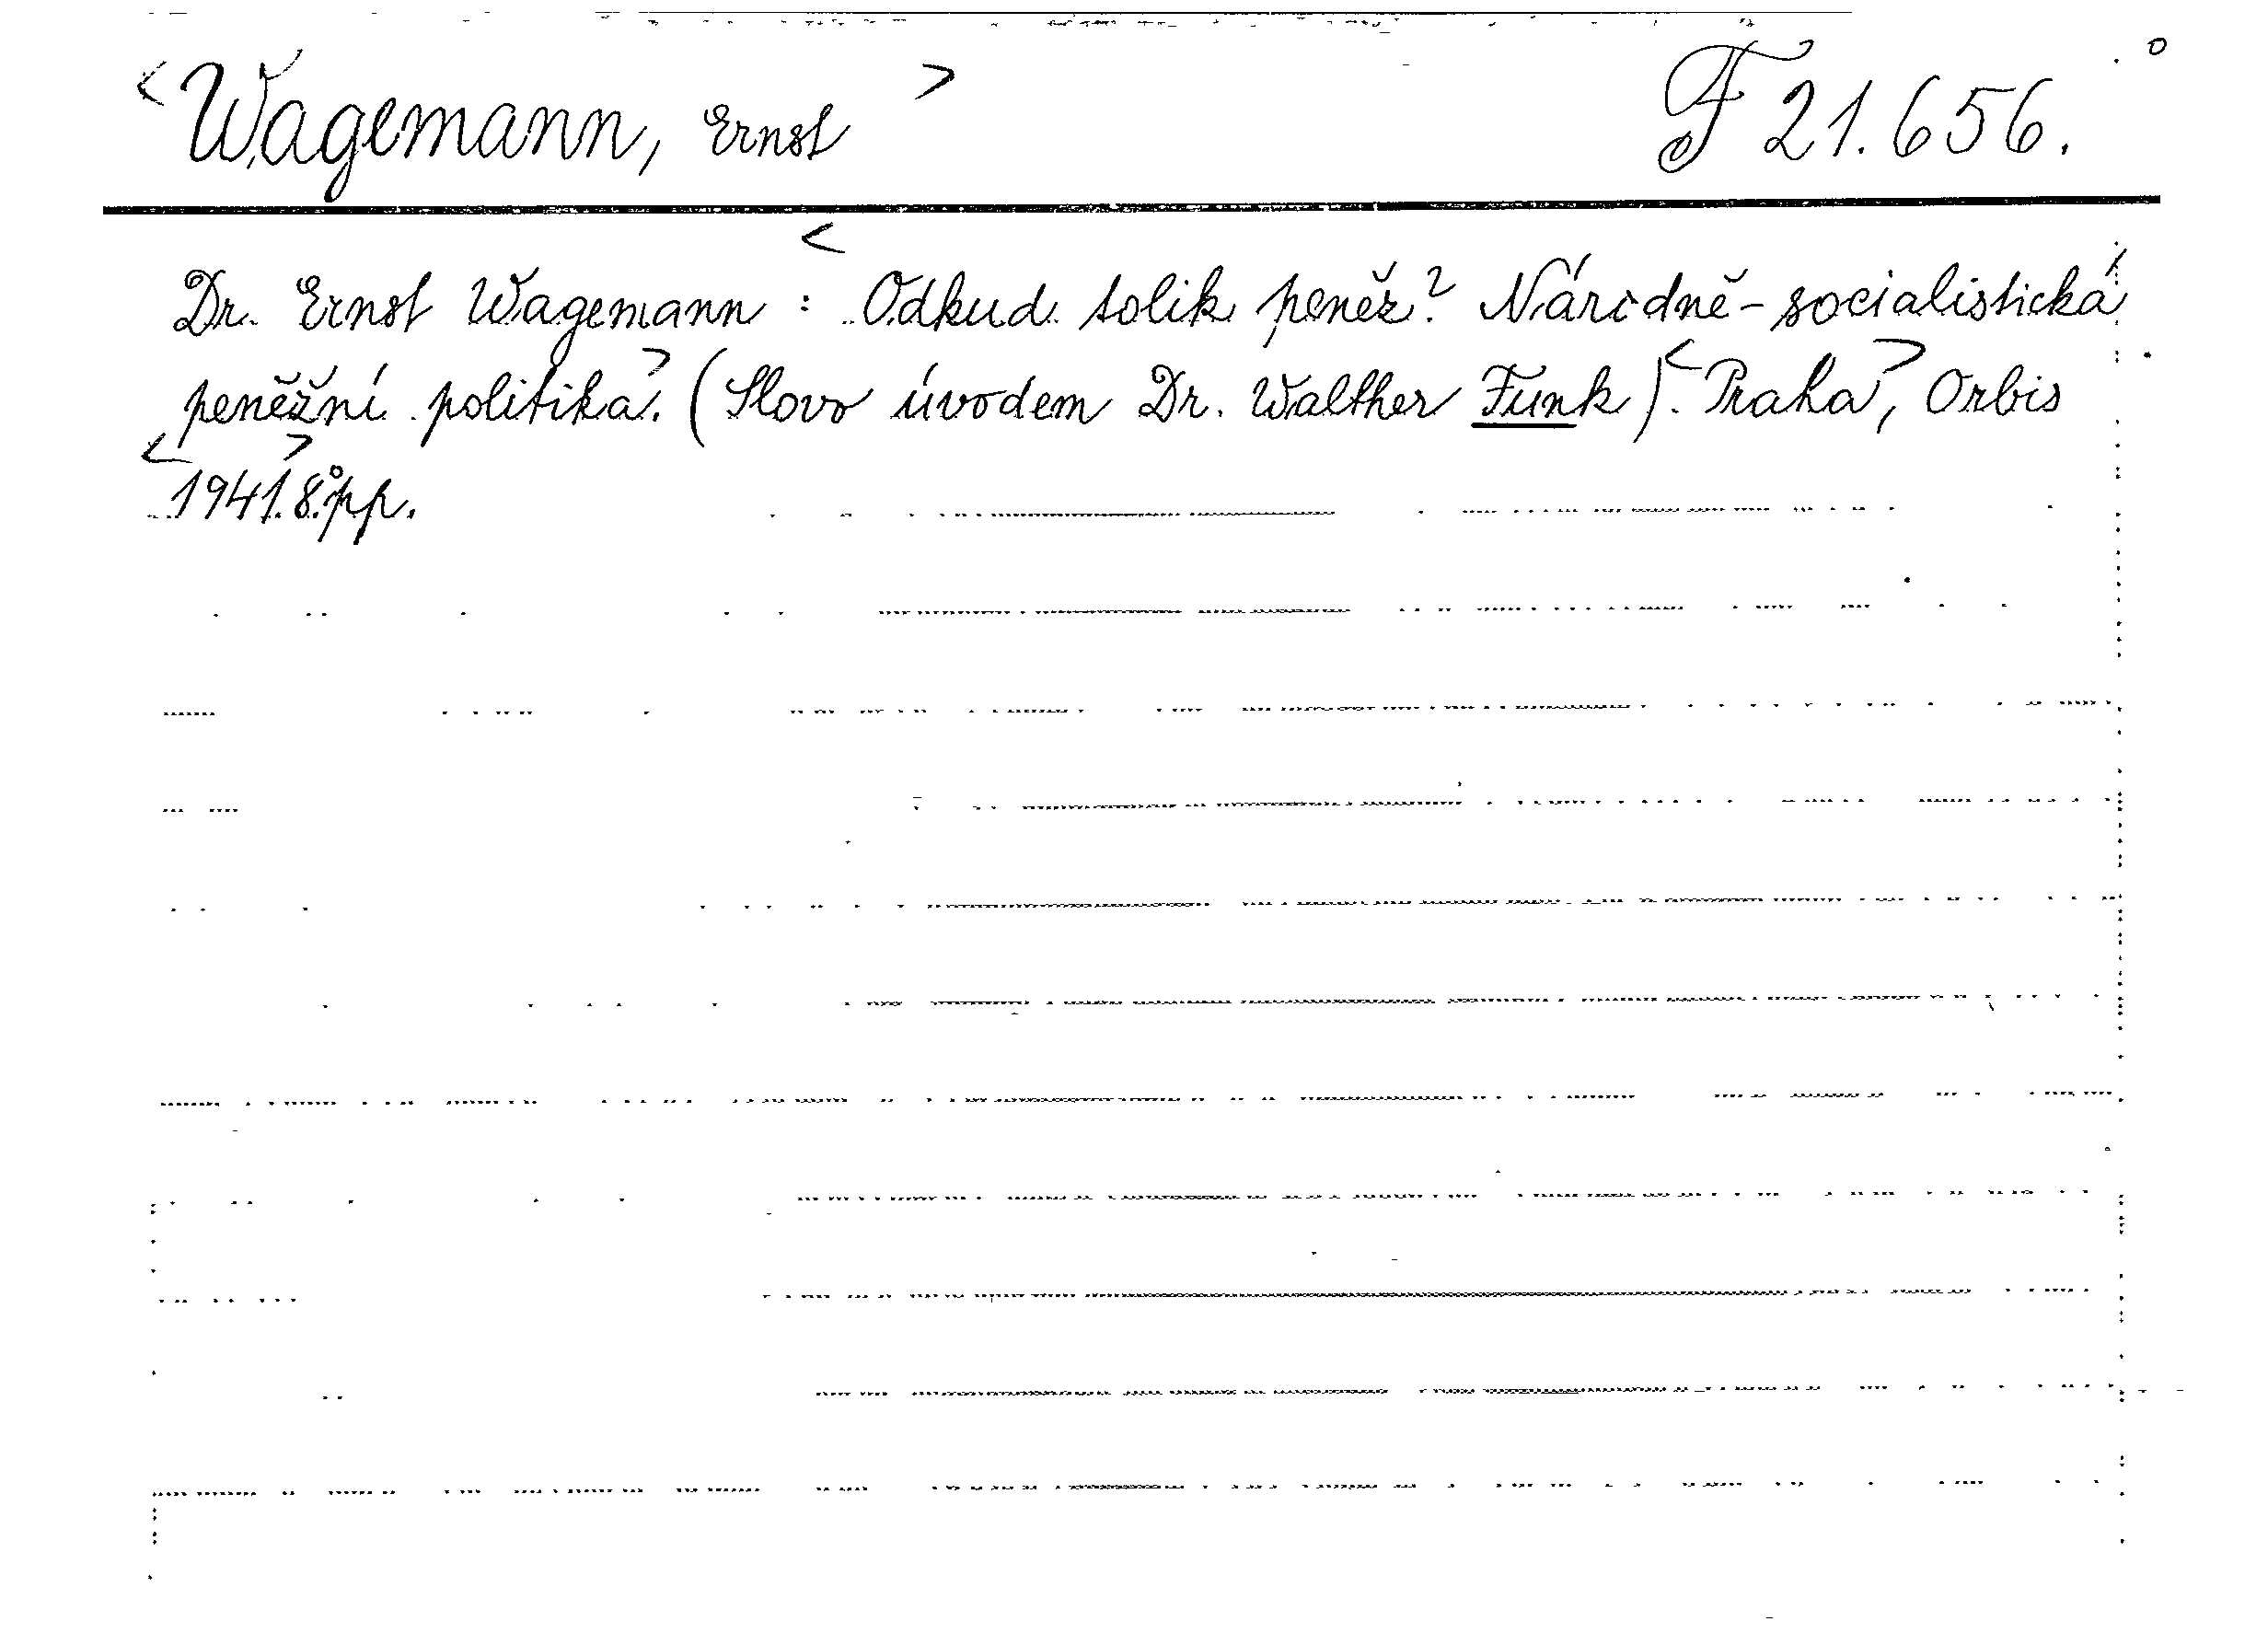 <Wagemann, Ernst> F 21.656.
Dr. Ernst Wagemann : <Odkud tolik peněz? Národně-socialistická
peněžní politika>. (Slovo úvodem Dr. Walther Funk). <Praha>, Orbis
<1941>. 8° pp.